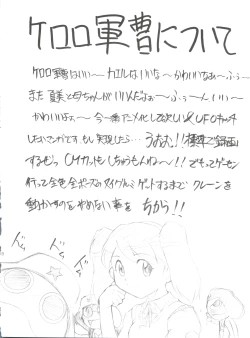 ケロロ軍曹について
ケロロ軍曹はいい〜 カエルはいいな〜 かわいいなぁ〜 ふぅー
また 夏美と母ちゃんが いいんだよねぇ〜 ふぅ〜ん いぃ〜
かわいいよぉ〜 今一番アニメ化してほしい & UFOキャッチ
したいさかです。もし実現したら… うおぉ!! 標準で録画
するぜっ CMカットもしちゃうもんね〜!! でもってゲーセン
行って全色全ポーズのヌイグルミゲットするまで クレーンを
動かすのをやめない事を ちかう!!
ドッ
ドッ